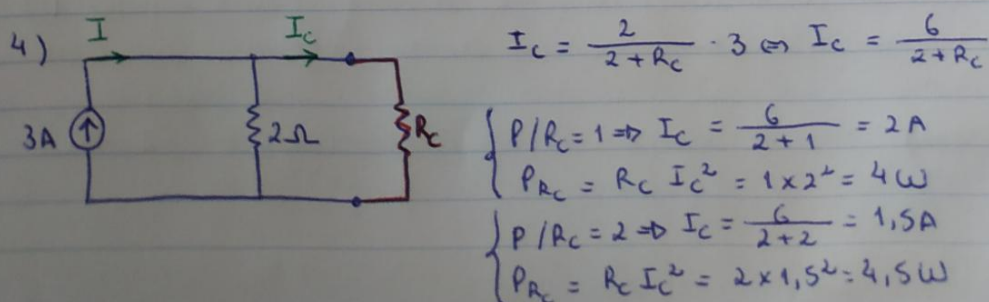 4)
I
I_c
3A
2Ω
R_c
I_c = 2/(2 + R_c) · 3 ⇔ I_c = 6/(2 + R_c)
P/R_c = 1 ⇒ I_c = 6/(2 + 1) = 2A
P_{R_c} = R_c I_c² = 1 × 2² = 4W
P/R_c = 2 ⇒ I_c = 6/(2 + 2) = 1,5A
P_{R_c} = R_c I_c² = 2 × 1,5² = 4,5W